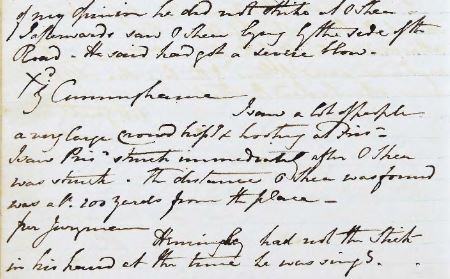 of my opinion he did not strike at O Shea -
I afterwards saw O Shea lying by the side of the
Road - He said had got a severe blow -
Xd
by Cunninghame
I saw a lot of people
a very large crowd & hooting at Pris -
I saw Prisr struck immediately after O Shea
was struck - the distance O Shea was found
was abt. 200 yards from the place -
per Juryman
Hemingby had not the Stick
in his hand at the time he was singg.